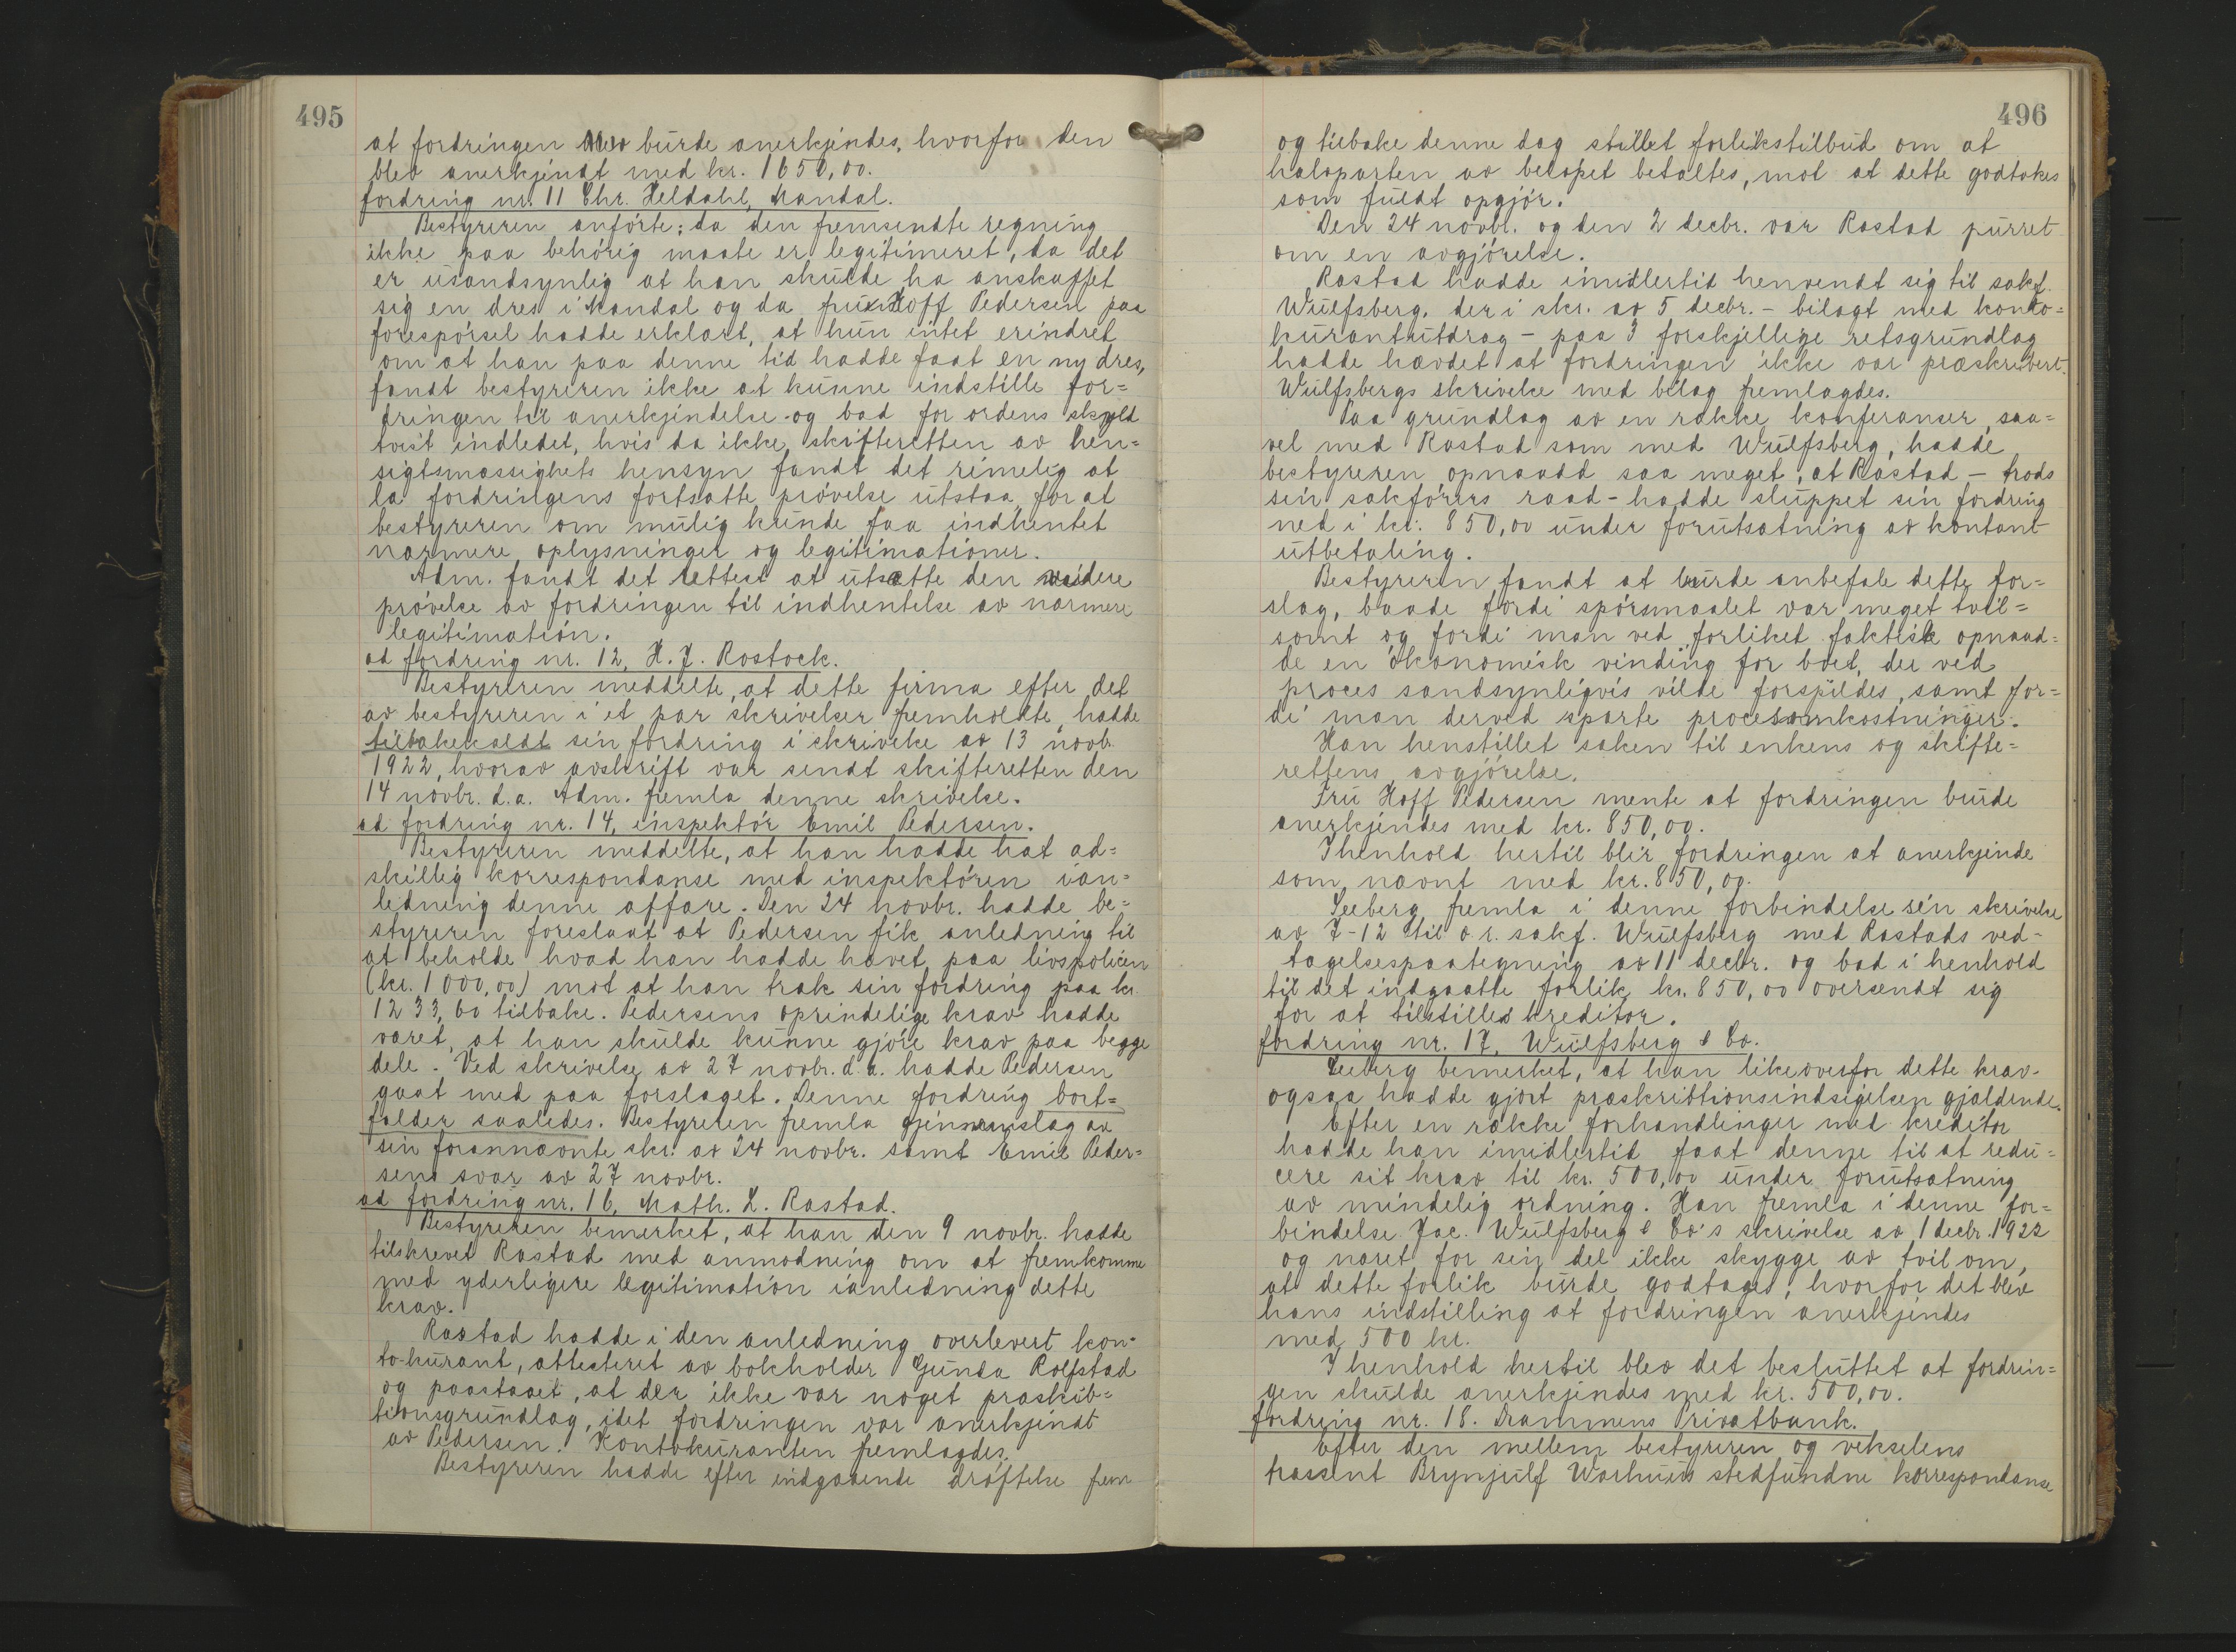 495
at fordringen burde anerkjendes, hvorfor den
blev anerkjendt med kr. 1650,00.
fordring nr. 11 Chr. Heldahl, Mandal.
Bestyreren anførte; da den fremsendte regning
ikke paa behørig maate er legitimeret, da det
er usandsynlig at han skulde ha anskaffet
sig en dres i Mandal og da fru Hoff Pedersen paa
forespørsel hadde erklært, at hun intet erindret
om at han paa denne tid hadde faat en ny dres,
fandt bestyreren ikke at kunne indstille for=
dringen til anerkjendelse og bad for ordens skyld
tvist indledet, hvis da ikke skifteretten av hen=
sigtsmæssighets hensyn fandt det rimelig at
la fordringens fortsatte prøvelse utstaa, for at
bestyreren om mulig kunde faa indhentet
nærmere oplysninger og legitimationer.
Adm. fandt det rettest at utsætte den videre
prøvelse av fordringen til indhentelse av nærmere
legitimation.
ad fordring nr. 12, H. J. Rostock.
Bestyreren meddelte, at dette firma efter det
av bestyreren i et par skrivelser fremholdte hadde
tilbakekaldt sin fordring i skrivelse av 13 novbr.
1922, hvorav avskrift var sendt skifteretten den
14 novbr. d.a. Adm. fremla denne skrivelse.
ad fordring nr. 14, inspektør Emil Pedersen.
Bestyreren meddelte, at han hadde hat ad=
skillig korrespondanse med inspektøren i an=
ledning denne affære. Den 24 novbr. hadde be=
styreren foreslaat at Pedersen fik anledning til
at beholde hvad han hadde hævet paa livspolicen
(kr. 1000,00) mot at han trak sin fordring paa kr.
1233,60 tilbake. Pedersens oprindelige krav hadde
været, at han skulde kunne gjøre krav paa begge
dele. Ved skrivelse av 27 novbr. d.a. hadde Pedersen
gaat med paa forslaget. Denne fordring bort=
falder saaledes. Bestyreren fremla gjennemslag av
sin forannævnte skr. av 24 novbr. samt Emil Peder=
sens svar av 27 novbr.
ad fordring nr. 16, Math. L. Rastad.
Bestyreren bemerket, at han den 9 novbr. hadde
tilskrevet Rastad med anmodning om at fremkomme
med yderligere legitimation i anledning dette
krav.
Rastad hadde i den anledning overlevert kon=
to-kurant, attesteret av bokholder Gunda Rolfstad
og paastaaet, at der ikke var noget præskrib=
tionsgrundlag, idet fordringen var anerkjendt
av Pedersen. Kontokuranten fremlagdes.
Bestyreren hadde efter indgaaende drøftelse frem
496
og tilbake denne dag stillet forlikstilbud om at
halvparten av beløpet betaltes, mot at dette godtokes
som fuldt opgjør.
Den 24 novbr. og den 2 decbr. var Rastad purret
om en avgjørelse.
Rastad hadde imidlertid henvendt sig til sakf.
Wulfsberg, der i skr. av 5 decbr. - bilagt med konto=
kurantutdrag - paa 3 forskjellige retsgrundlag
hadde hævdet at fordringen ikke var præskribert.
Wulfsbergs skrivelse med bilag fremlagdes.
Paa grundlag av en række konferanser, saa=
vel med Rastad som med Wulfsberg, hadde
bestyreren opnaadd saa meget, at Rastad - trods
sin sakførers raad - hadde sluppet sin fordring
ned i kr. 850,00 under forutsætning av kontant
utbetaling.
Bestyreren fandt at burde anbefale dette for=
slag, baade fordi spørsmaalet var meget tvil=
somt og fordi man ved forliket faktisk opnaad=
de en økonomisk vinding for boet, der ved
proces sandsynligvis vilde forspildes, samt for=
di man derved sparte procesomkostninger.
Han henstillet saken til enkens og skifte=
rettens avgjørelse.
Fru Hoff Pedersen mente at fordringen burde
anerkjendes med kr. 850,00.
I henhold hertil blir fordringen at anerkjende
som nævnt med kr. 850,00.
Seeberg fremla i denne forbindelse sin skrivelse
av 7-12 til o.r. sakf. Wulfsberg med Rastads ved-
tagelsespaategning av 11 decbr. og bad i henhold
til det indgaatte forlik kr. 850,00 oversendt sig
for at tilstilles kreditor.
fordring nr. 17, Wulfsberg & Co.
Seeberg bemerket, at han likeoverfor dette krav
ogsaa hadde gjort præskribtionsindsigelsen gjældende.
Efter en række forhandlinger med kreditor
hadde han imidlertid faat denne til at redu=
cere sit krav til kr. 500,00 under forutsætning
av mindelig ordning. Han fremla i denne for=
bindelse Jac. Wulfsberg & Co's skrivelse av 1 decbr. 1922
og næret for sin del ikke skygge av tvil om,
at dette forlik burde godtages, hvorfor det blev
hans indstilling at fordringen anerkjendes
med 500 kr.
I henhold hertil blev det besluttet at fordrin=
gen skulde anerkjendes med kr. 500,00.
fordring nr. 18. Drammens Privatbank.
Efter den mellem bestyreren og vekselens
trassent Brynjulf Warhuus stedfundne korrespondanse